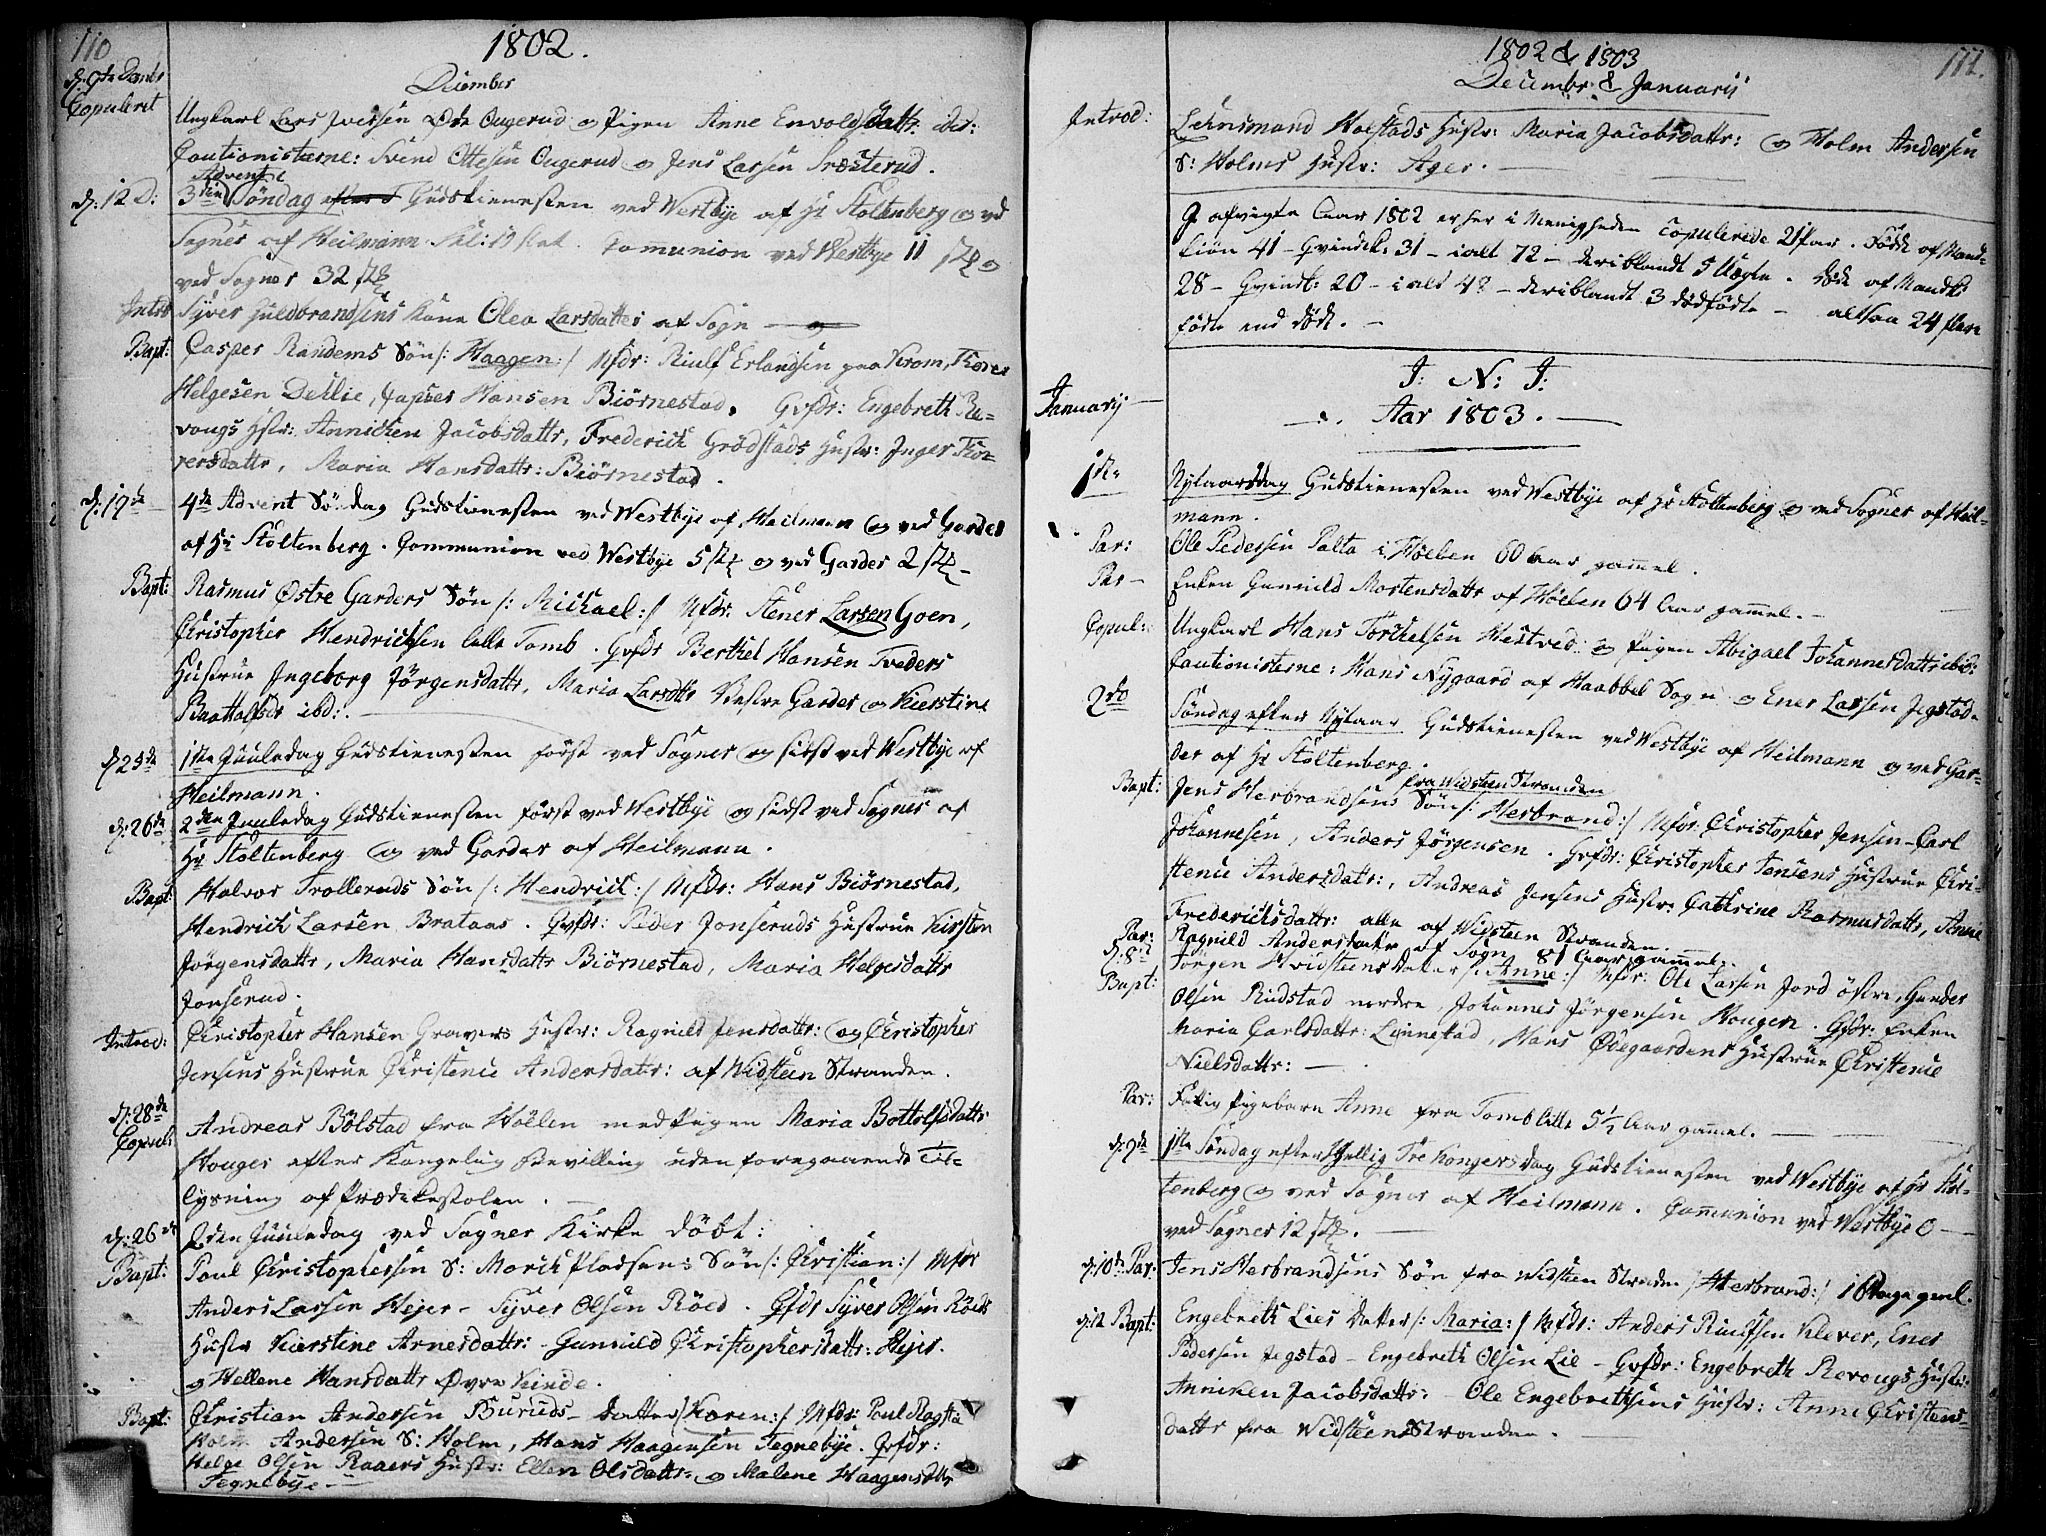 110
1802.
December
d: 9de Decbr
Copuleret
Ungkarl Lars Iversen Østr Ougerud og Pigen Anne Envoldsdattr. ibd:
Cautionisterne: Svend Ottesen Ougerud og Jens Larsen Sræsterud.
d: 12 D:
Advent
3die Søndag efter Gudstienesten ved Westbye af Hr Stoltenberg og ved
Sogner af Heilmann. Communion ved Westbye 11
ved Sogner 32
Introd
Syver Guldbrandsens Kone Olea Larsdatter af Sogn
Bapt:
Casper Randems Søn /: Haagen :/ Mfdr: Riulf Erlandsen paa Krom, Tor
Helgesen Dehlie, Casper Hansen Biørnestad. Qvfdr: Engebreth Re-
vougs Hstr: Annichen Jacobsdattr, Frederich Grødstads Hustr: Inger Tor-
versdattr, Maria Hansdattr: Biørnestad.
d: 19de
4de Advent Søndag Gudstienesten ved Westbye af Heilmann og ved Garder
af Hr Stoltenberg. Communion ved Westbye 5 og ved Garder 2
Bapt:
Rasmus Østre Garders Søn /: Michael :/ Mfdr: Stener Larsen Goen,
Christopher Hendrichsen lille Tomb. Qvfdr Berthel Hansen Tveders
Hustrue Ingeborg Jørgensdattr, Maria Larsdttr Vestre Garder og Kierstine
ibd:.
d 25de
1ste Juuledag Gudstienesten først ved Sogner og sidst ved Westbye af
Heilmann.
d: 26de
2den Juuledag Gudstienesten først ved Westbye og sidst ved Sogner af
Hr Stoltenberg og ved Garder af Heilmann.
Bapt:
Halvor Trolleruds Søn /: Hendrich :/ Mfdr: Hans Biørnestad,
Hendrich Larsen Brataas. Qvfdr: Peder Jonseruds Hustrue Kirsten
Jørgensdattr, Maria Hansdattr Biørnestad, Maria Helgesdattr
Jonserud.
Introd:
Christopher Hansen Gravers Hustr: Ragnild Jensdattr: og Christopher
Jensens Hustrue Christence Andersdatr: af Widsteen Stranden.
d: 28de
Copul:
Andreas Bölstad fra Höllen med Pigen Maria Bottolfsdattr
Houger efter Kongelig Bevilling uden foregaaende Til-
lysning af Prædikestolen.
d: 26de
2den Juuledag ved Sogner Kirke døbt:
Bapt:
Poul Christophersen S: Morck Pladsen: Søn /: Christian :/ Mfdr
Anders Larsen Hejer - Syver Olsen Röed. Qfdr Syver Olsen Röeds
Hustr Kierstine Arnesdattr: - Gunnild Christophersdattr: Hejer.
og Hellene Hansdattr Øvre Kinde.
Bapt:
Christian Andersen Buruds - Datter /: Karen :/ Mfdr: Poul
Holm Andersen S: Holm, Hans Haagensen Tegnebye. Qvfdr:
Helge Olsen Raaers Hustr: Ellen Olsdattr: og Malene Haagensdttr
Tegnebye.
111.
1802 & 1803
Decembr: & Januarii
Introd:
Lehnsmand Holstads Hustr: Maria Jacobsdattr: og Holm Andersen
S: Holms Hustr: Ager.
I afvigte Aar 1802 er her i Menigheden Copulerede 21 Par. Födde af Mand-
kiøn 41 - Qvindek: 31 - ialt 72 - deriblandt 5 Uægte. Döde af Mandk:
28 - Qvindk: 20 - ialt 48 - deriblandt 3 dødfødte - altsaa 24 flere
födte end döde.
I: N: J:
Aar 1803.
Januarij
1ste
Nytaarsdag Gudstienesten ved Westbye af Hr Stoltenberg og ved Sogner af Heil-
mann.
Par:
Ole Pedersen Palta i Höelen 60 Aar gammel.
Par
Enken Gunnild Mortensdattr af Höelen 64 Aar gammel.
Copul:
Ungkarl Hans Torchelsen Hestved og Pigen Abigael Johannesdattr ibid:
Cautionisterne: Hans Nygaard af Haabbel Sogn og Ener Larsen Jegstad.
2do
Søndag efter Nytaar Gudstienesten ved Westbye af Heilmann og ved Gar-
der af Hr Stoltenberg.
Bapt:
fra Widsteen Stranden
Jens Herbrandsens Søn /: Herbrand :/ Mfdr: Christopher Jensen - Carl
Johannesen, Anders Jørgensen. Qvfdr: Christopher Jensens Hustrue Chri-
stence Andersdattr:, Andreas Jensens Hustr: Cathrine Rasmusdattr, Anne
Frederichsdattr: alle af Widsteen Stranden.
Par:
Ragnild Andersdattr af Sogn 81 Aar gammel.
d: 8de
Bapt:
Jørgen Hvidsteens Datter /: Anne :/ Mfdr: Ole Larsen Jord östre, Gunder
Olsen Rudstad nordre, Johannes Jørgensen Hougen. Qfdr: Enken
Maria Carlsdattr: Linnestad, Hans Ødegaardens Hustrue Christence
Nielsdattr:
Par:
Fattig Pigebarn Anne fra Tomb litle 5½ Aar gammel.
d: 9de
1ste Søndag efter Hellig Tre Kongersdag Gudstienesten ved Westbye af Hr Stol-
tenberg og ved Sogner af Heilmann. Communion ved Westbye 0
ved Sogner 12
d: 10de Par:
Jens Herbrandsens Søn fra Widsteen Stranden /: Herbrand :/ 16 Dage gml.
d: 12 Bapt:
Engebreth Lies Datter /: Maria :/ Mfdr: Anders Riulfsen Klever, Ener
Pedersen Jegstad - Engebreth Olsen Lie - Qvfdr: Engebreth Revougs Hustr:
Anniken Jacobsdattr: - Ole Engebrethsens Hustr: Anne Christens-
dattr fra Widsteen Stranden.